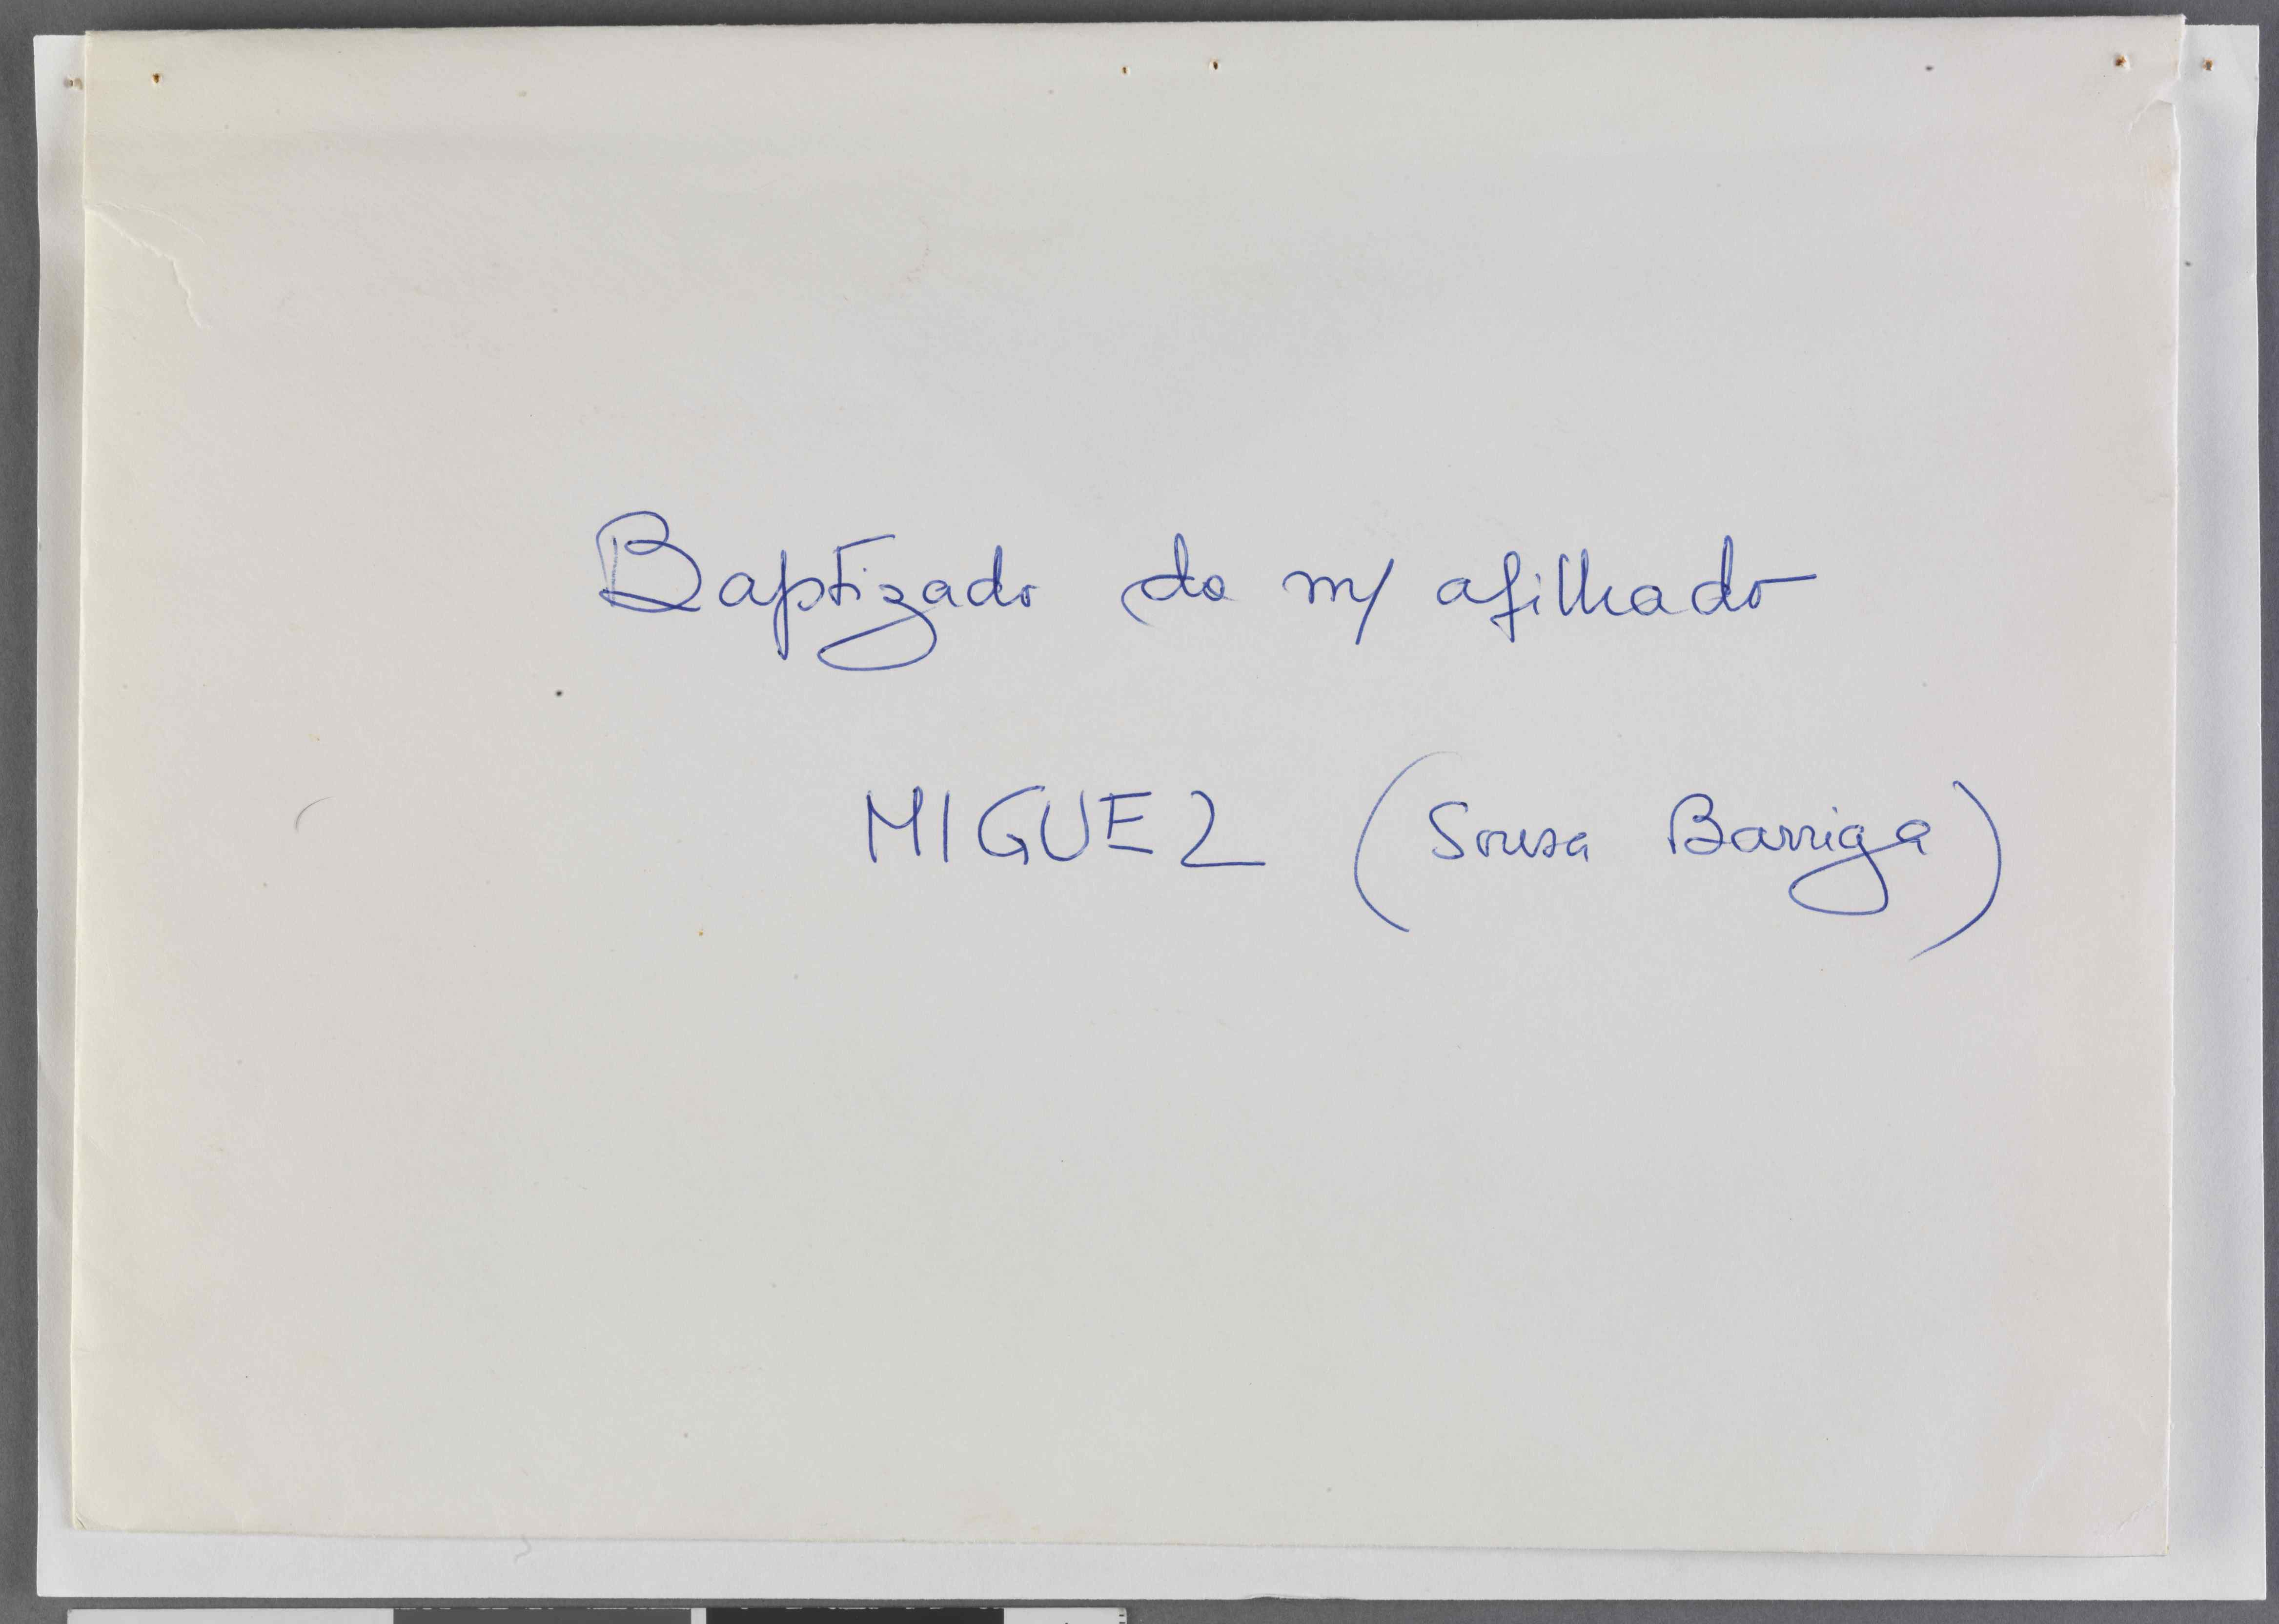 Baptizado do m/ afilhado
MIGUEL (Sousa Barriga)